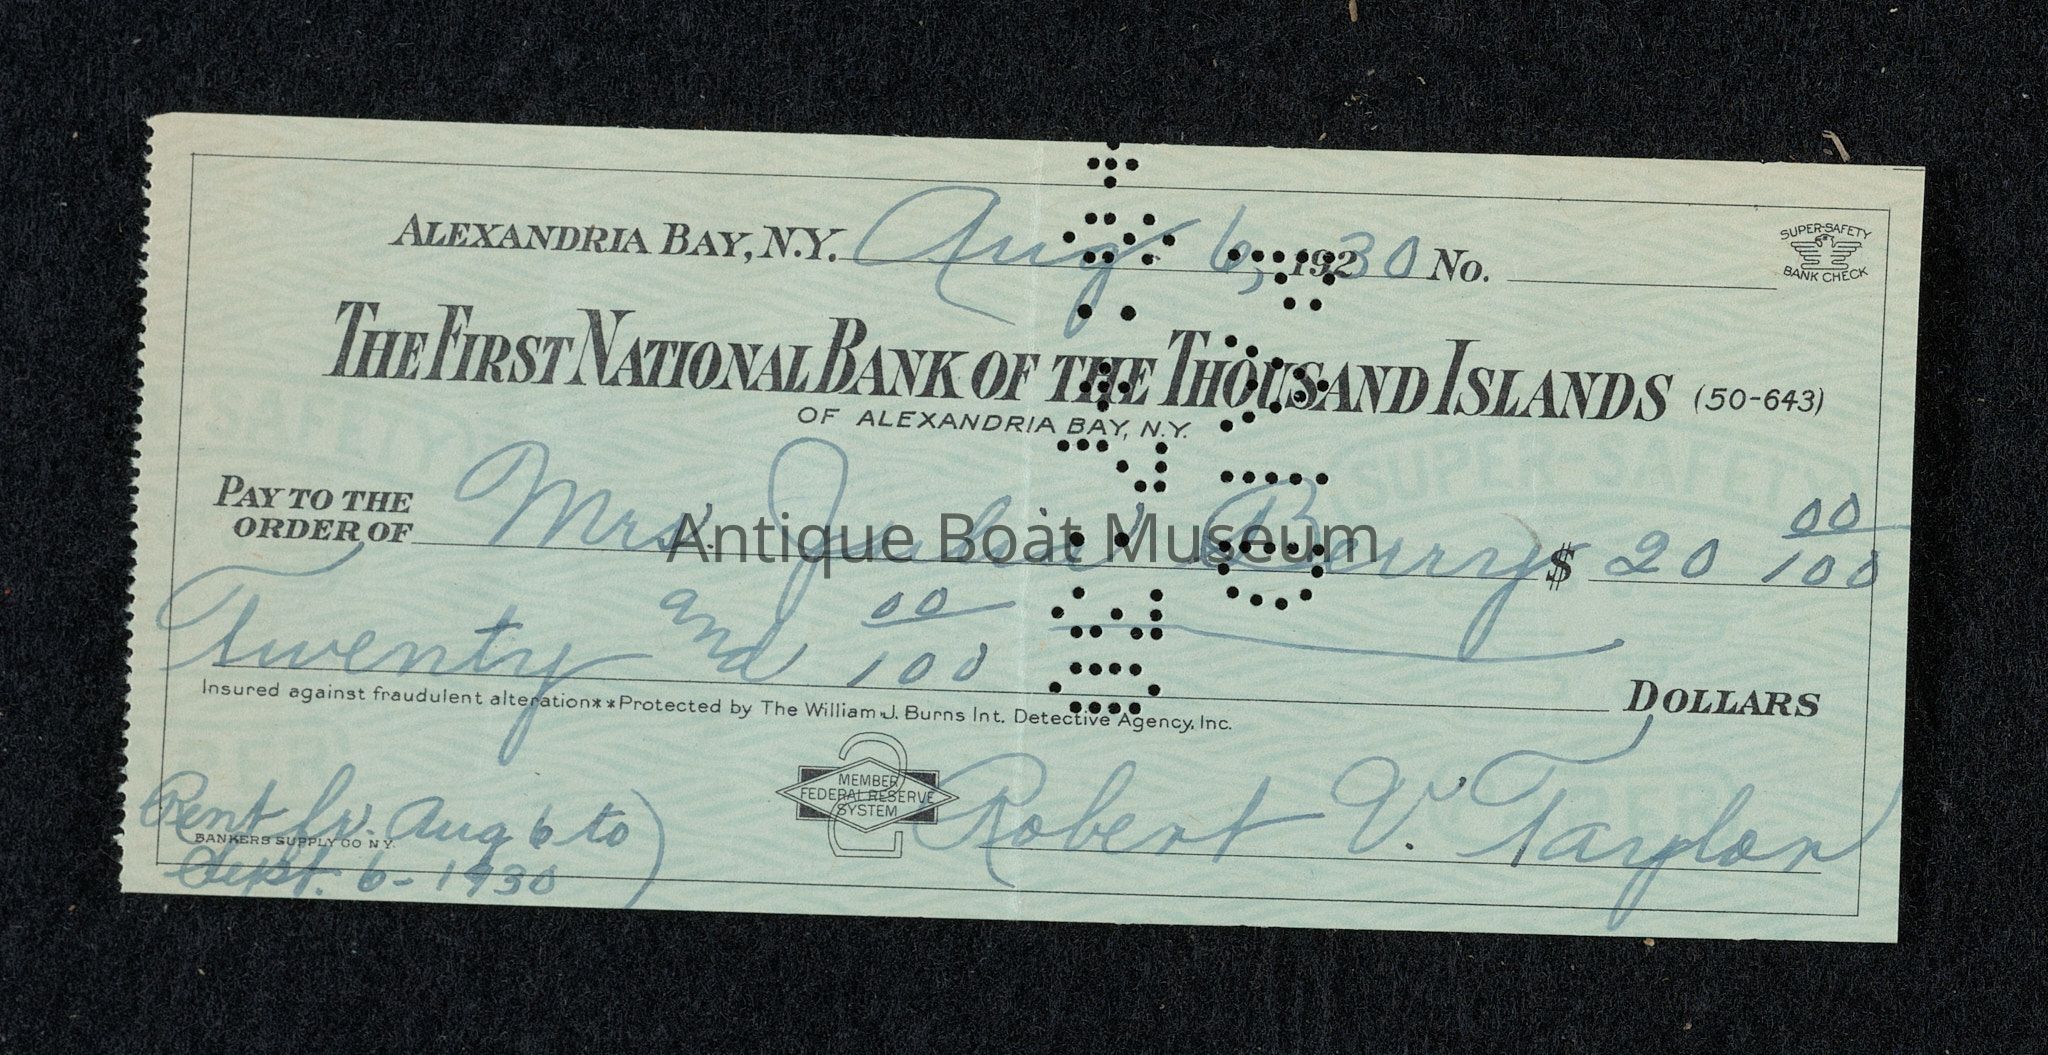 ALEXANDRIA BAY, N.Y. Aug 6, 19230 No.
SUPER-SAFETY
BANK CHECK
THE FIRST NATIONAL BANK OF THE THOUSAND ISLANDS (50-643)
OF ALEXANDRIA BAY, N.Y.
SAFETY
SUPER-SAFETY
PAY TO THE
ORDER OF Mrs. Julia Berry $ 20 00/100
Antique Boat Museum
Twenty and 00/100 DOLLARS
Insured against fraudulent alteration**Protected by The William J. Burns Int. Detective Agency, Inc.
MEMBER
FEDERAL RESERVE
SYSTEM
Robert V. Taylor
Rent fr. Aug 6 to
BANKERS SUPPLY CO N.Y.
Sept. 6-1930